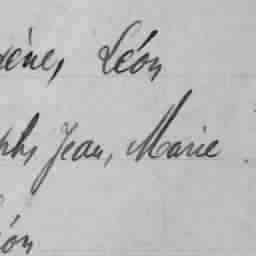 ène, Léon
ph, Jean, Marie
éon